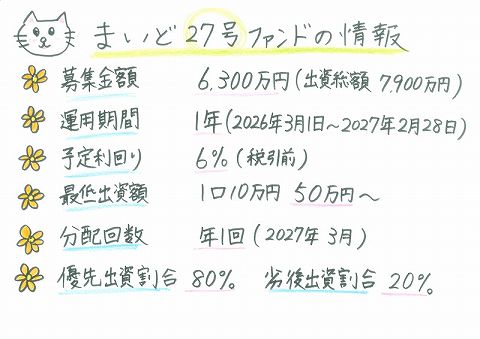 まいど27号ファンドの情報
募集金額 6,300万円(出資総額 7,900万円)
運用期間 1年(2026年3月1日～2027年2月28日)
予定利回り 6%(税引前)
最低出資額 1口10万円 50万円～
分配回数 年1回(2027年3月)
優先出資割合 80%。 劣後出資割合 20%。